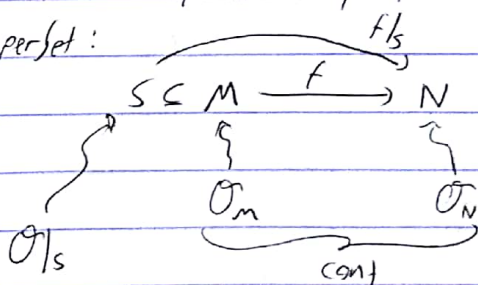 perset:
f|s
S ⊆ M —f→ N
O_M O_N
O|s
cont